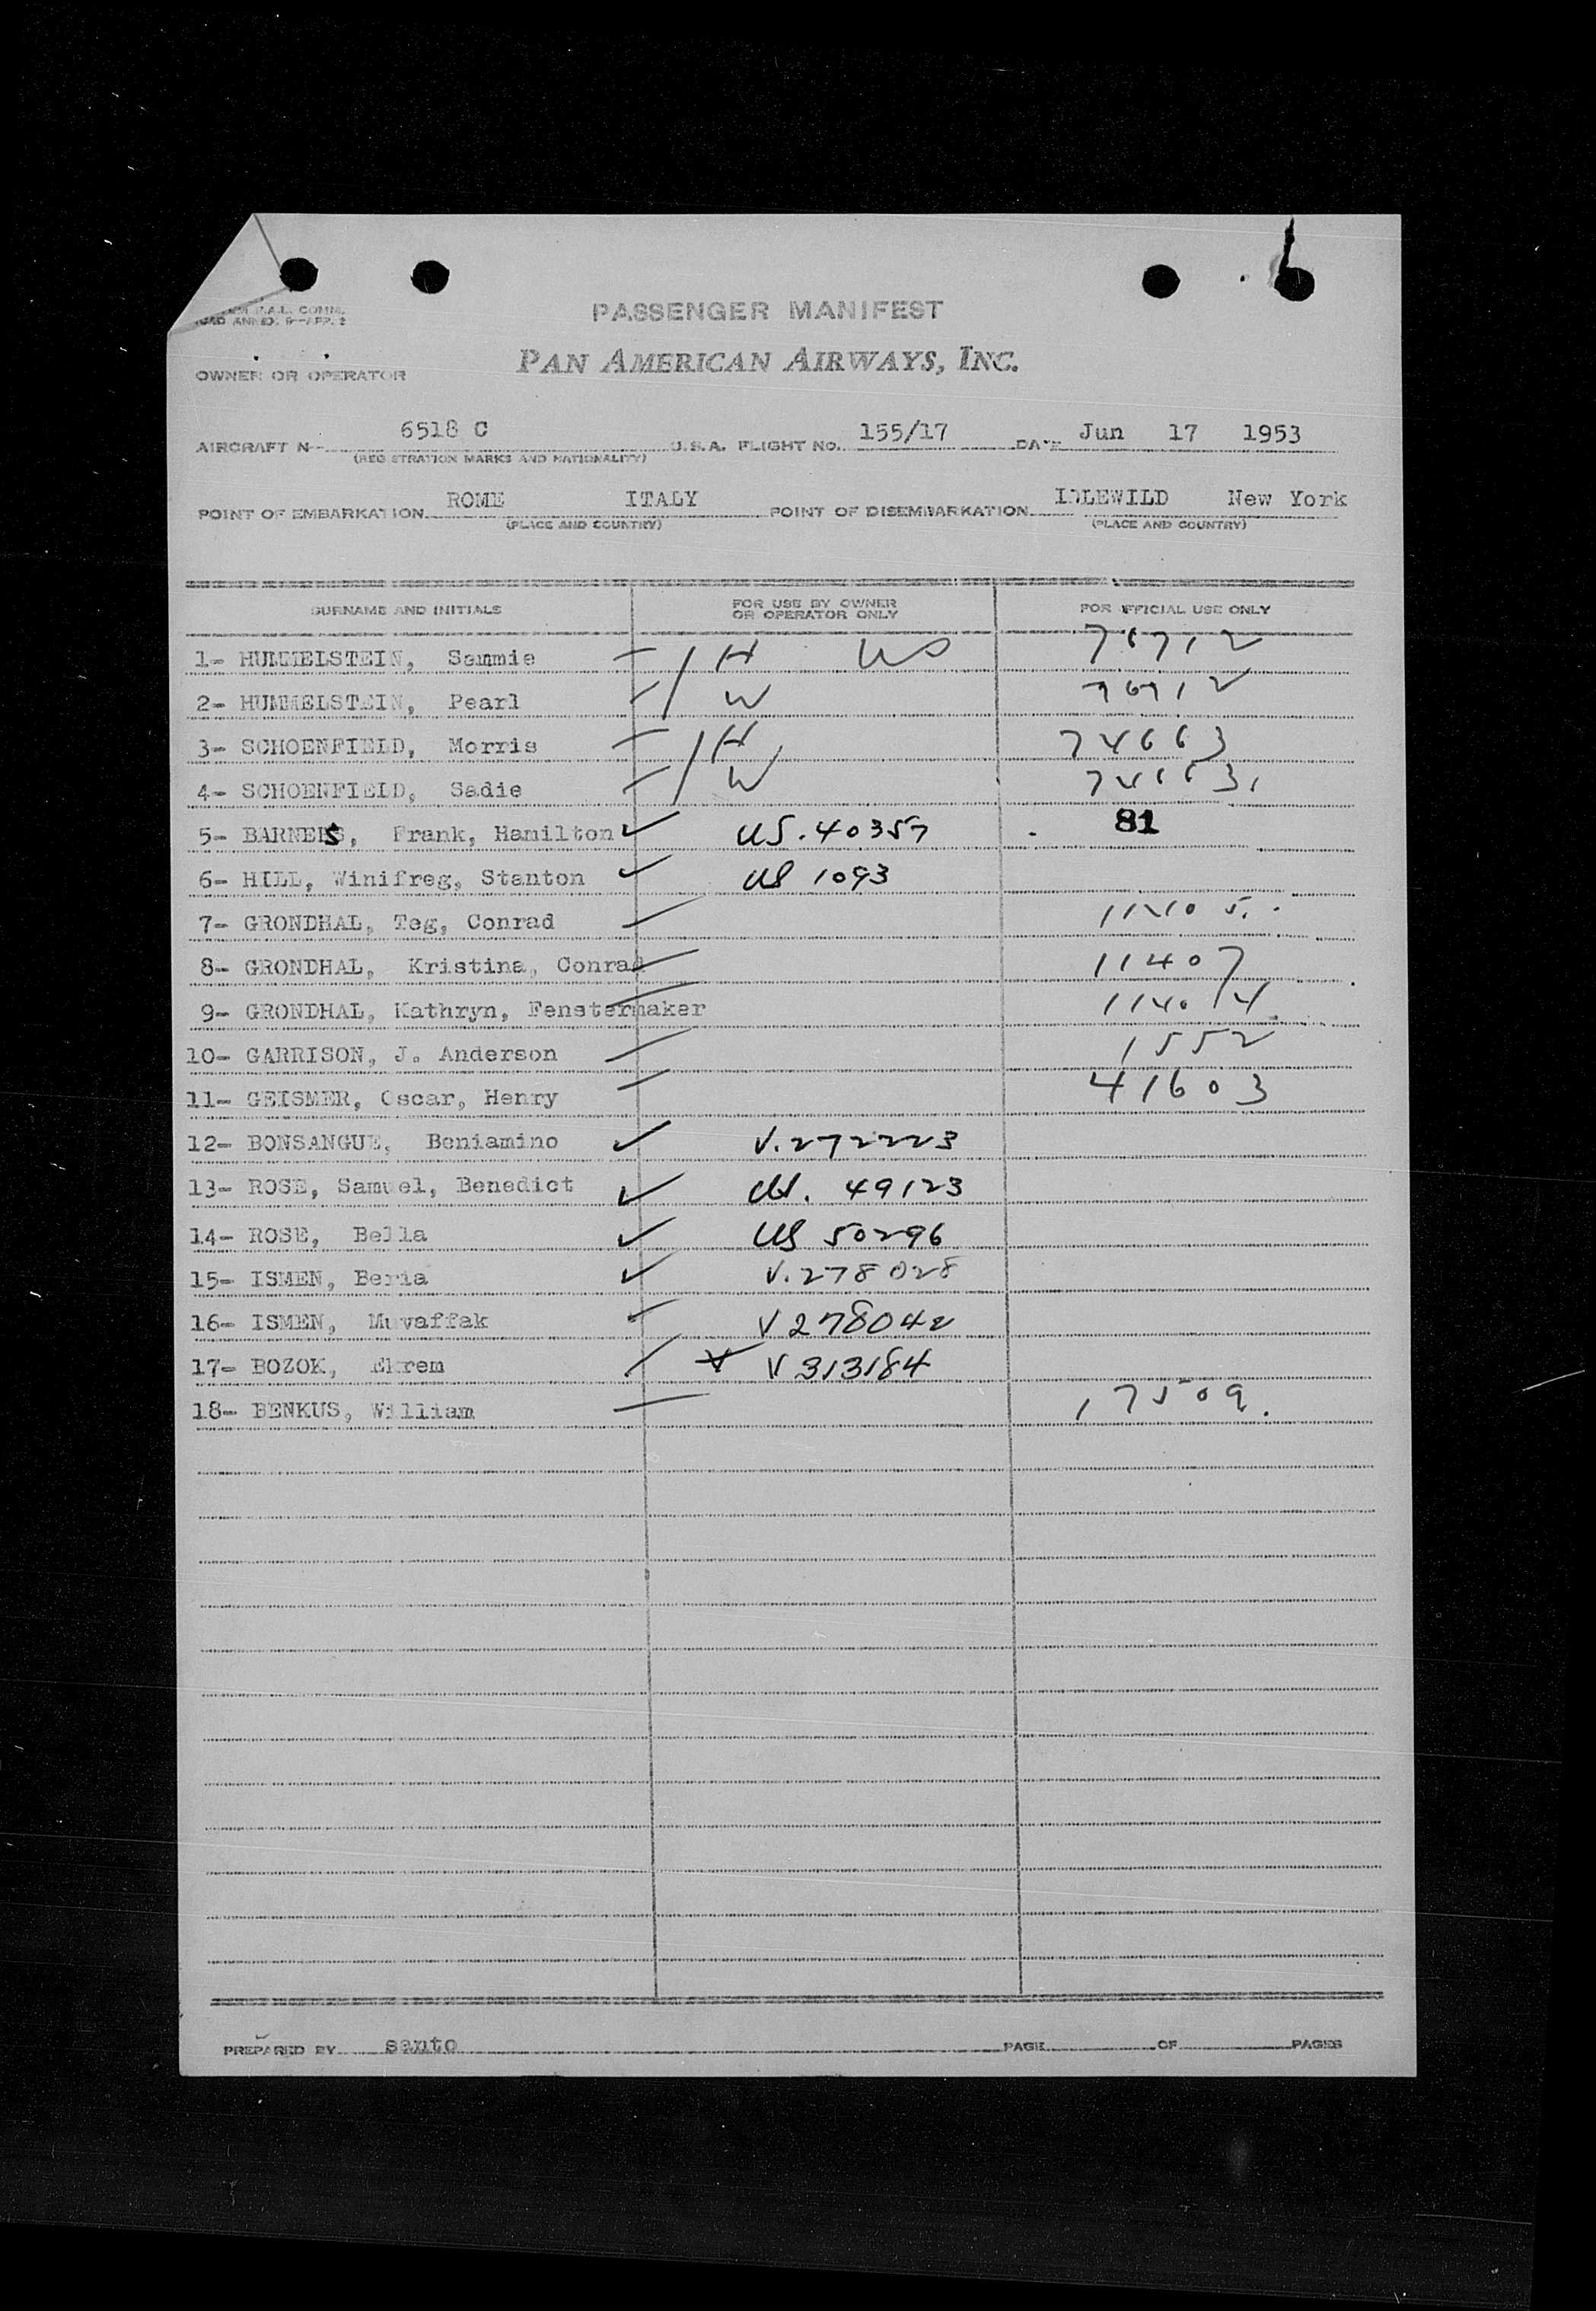 PASSENGER MANIFEST
PAN AMERICAN AIRWAYS, INC.
OWNER OR OPERATOR
AIRCRAFT N 6518 C U.S.A. FLIGHT NO. 155/17 DATE Jun 17 1953
(REGISTRATION MARKS AND NATIONALITY)
POINT OF EMBARKATION ROME ITALY POINT OF DISEMBARKATION IDLEWILD New York
(PLACE AND COUNTRY) (PLACE AND COUNTRY)
SURNAME AND INITIALS FOR USE BY OWNER OR OPERATOR ONLY FOR OFFICIAL USE ONLY
1- HUMMELSTEIN, Sammie H US 76712
2- HUMMELSTEIN, Pearl W 76712
3- SCHOENFIELD, Morris H 74663
4- SCHOENFIELD, Sadie W 74663
5- BARNES, Frank, Hamilton US. 40357 81
6- HILL, Winifreg, Stanton US 1093
7- GRONDHAL, Teg, Conrad
8- GRONDHAL, Kristina, Conrad 11407
9- GRONDHAL, Kathryn, Fenstermaker
10- GARRISON, J. Anderson 1552
11- GEISMER, Oscar, Henry 41603
12- BONSANGUE, Beniamino V. 272223
13- ROSE, Samuel, Benedict US. 49123
14- ROSE, Bella US 50296
15- ISMEN, Beria V. 278028
16- ISMEN, Muvaffak V 278042
17- BOZOK, Ekrem V 313184
18- BENKUS, William 17509.
PREPARED BY santo PAGE OF PAGES